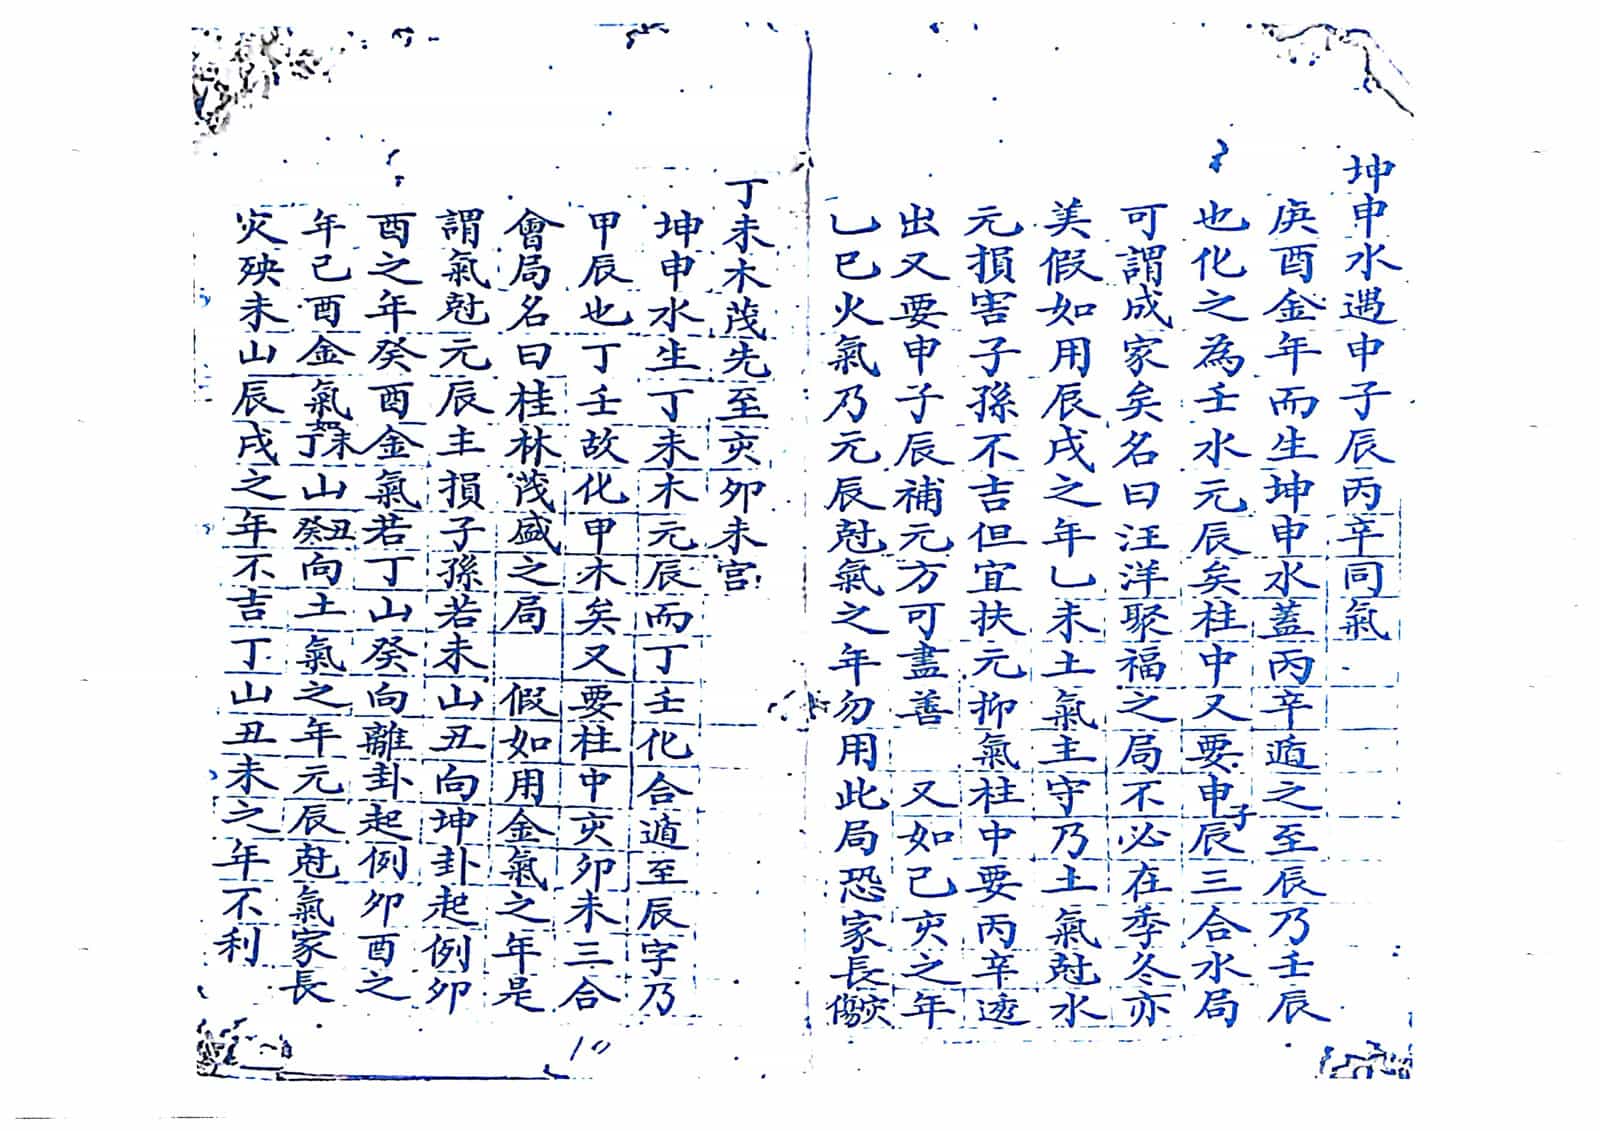 坤申水遇申子辰丙辛同氣
庚酉金年而生坤申水蓋丙辛遁之至辰乃壬辰
也化之為壬水元辰矣柱中又要申子辰三合水局
可謂成家矣名曰汪洋聚福之局不必在季冬亦
美假如用辰戌之年乙未土氣主守乃土氣尅水
元損害子孫不吉但宜扶元抑氣柱中要丙辛透
出又要申子辰補元方可盡善　又如己亥之年
乙巳火氣乃元辰尅氣之年勿用此局恐家長傷灾
丁未木茂先至亥卯未宮
坤申水生丁未木元辰而丁壬化合遁至辰字乃
甲辰也丁壬故化甲木矣又要柱中亥卯未三合
會局名曰桂林茂盛之局　假如用金氣之年是
謂氣尅元辰主損子孫若未山丑向坤卦起例卯
酉之年癸酉金氣若丁山癸向離卦起例卯酉之
年己酉金氣如丁未山癸丑向土氣之年元辰尅氣家長
灾殃未山辰戌之年不吉丁山丑未之年不利
10